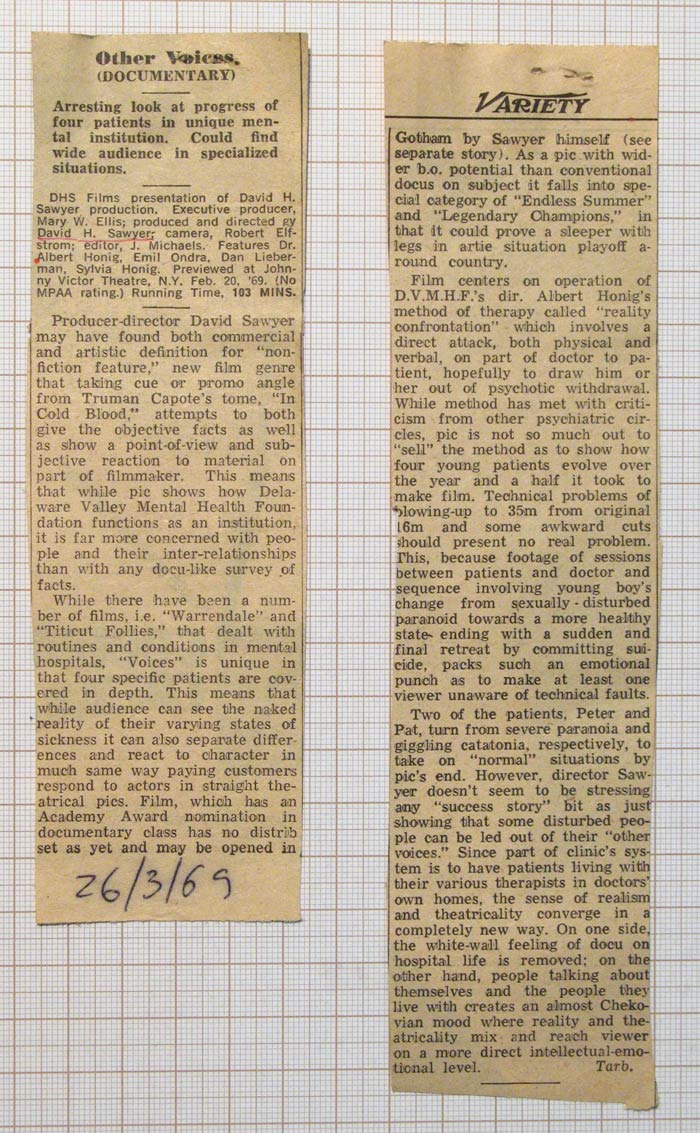 Other Voices.
(DOCUMENTARY)
Arresting look at progress of
four patients in unique men-
tal institution. Could find
wide audience in specialized
situations.
DHS Films presentation of David H.
Sawyer production. Executive producer,
Mary W. Ellis; produced and directed by
David H. Sawyer; camera, Robert Elf-
strom; editor, J. Michaels. Features Dr.
Albert Honig, Emil Ondra, Dan Lieber-
man, Sylvia Honig. Previewed at John-
ny Victor Theatre, N.Y. Feb. 20, '69. (No
MPAA rating.) Running Time, 103 MINS.
Producer-director David Sawyer
may have found both commercial
and artistic definition for "non-
fiction feature," new film genre
that taking cue or promo angle
from Truman Capote's tome, "In
Cold Blood," attempts to both
give the objective facts as well
as show a point-of-view and sub-
jective reaction to material on
part of filmmaker. This means
that while pic shows how Dela-
ware Valley Mental Health Foun-
dation functions as an institution,
it is far more concerned with peo-
ple and their inter-relationships
than with any docu-like survey of
facts.
While there have been a num-
ber of films, i.e. "Warrendale" and
"Titicut Follies," that dealt with
routines and conditions in mental
hospitals, "Voices" is unique in
that four specific patients are cov-
ered in depth. This means that
while audience can see the naked
reality of their varying states of
sickness it can also separate differ-
ences and react to character in
much same way paying customers
respond to actors in straight the-
atrical pics. Film, which has an
Academy Award nomination in
documentary class has no distrib
set as yet and may be opened in
26/3/69
VARIETY
Gotham by Sawyer himself (see
separate story). As a pic with wid-
er b.o. potential than conventional
docus on subject it falls into spe-
cial category of "Endless Summer"
and "Legendary Champions," in
that it could prove a sleeper with
legs in artie situation playoff a-
round country.
Film centers on operation of
D.V.M.H.F.'s dir. Albert Honig's
method of therapy called "reality
confrontation" which involves a
direct attack, both physical and
verbal, on part of doctor to pa-
tient, hopefully to draw him or
her out of psychotic withdrawal.
While method has met with criti-
cism from other psychiatric cir-
cles, pic is not so much out to
"sell" the method as to show how
four young patients evolve over
the year and a half it took to
make film. Technical problems of
blowing-up to 35m from original
16m and some awkward cuts
should present no real problem.
This, because footage of sessions
between patients and doctor and
sequence involving young boy's
change from sexually-disturbed
paranoid towards a more healthy
state ending with a sudden and
final retreat by committing sui-
cide, packs such an emotional
punch as to make at least one
viewer unaware of technical faults.
Two of the patients, Peter and
Pat, turn from severe paranoia and
giggling catatonia, respectively, to
take on "normal" situations by
pic's end. However, director Saw-
yer doesn't seem to be stressing
any "success story" bit as just
showing that some disturbed peo-
ple can be led out of their "other
voices." Since part of clinic's sys-
tem is to have patients living with
their various therapists in doctors'
own homes, the sense of realism
and theatricality converge in a
completely new way. On one side,
the white-wall feeling of docu on
hospital life is removed; on the
other hand, people talking about
themselves and the people they
live with creates an almost Cheko-
vian mood where reality and the-
atricality mix and reach viewer
on a more direct intellectual-emo-
tional level. Tarb.